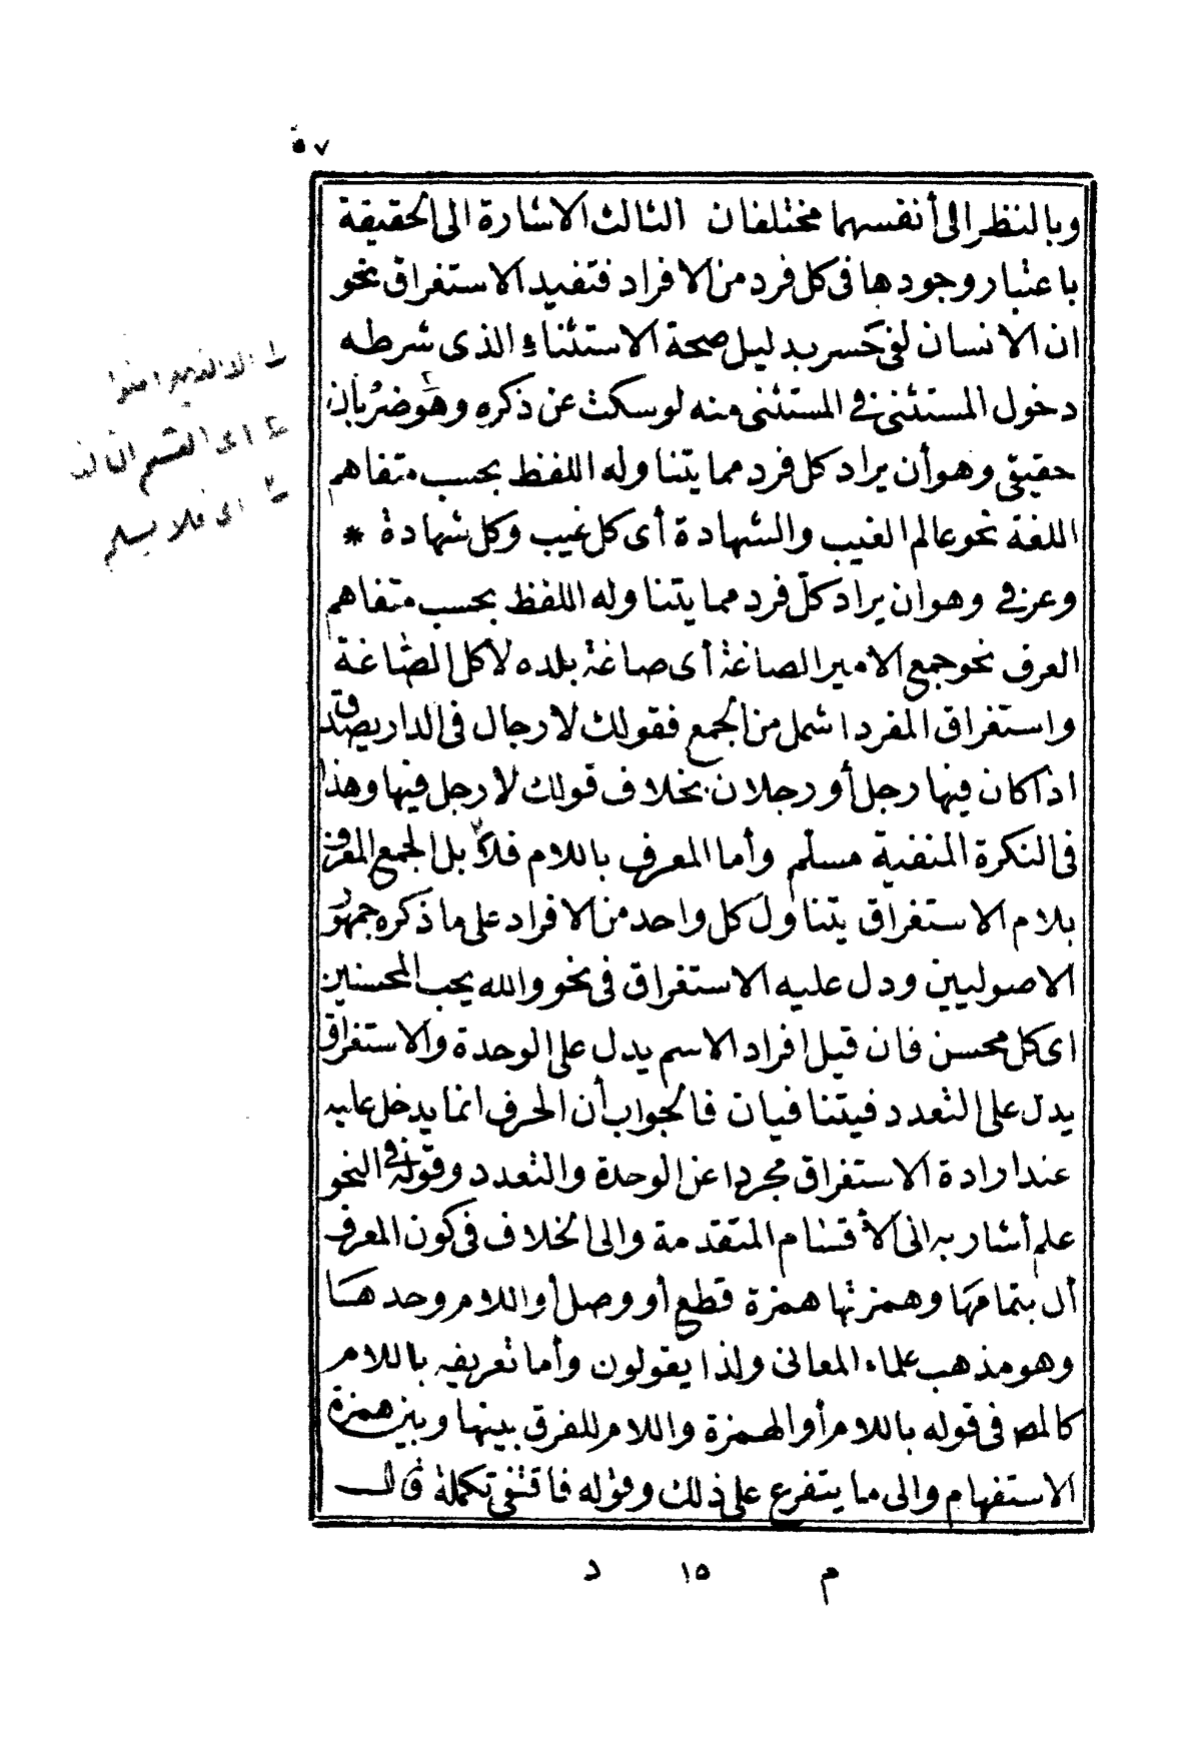 ٥٧
وبالنظر الى أنفسهما مختلفان الثالث الاشارة الى الحقيقة
باعتبار وجودها فى كل فرد من الافراد فتفيد الاستغراق نحو
ان الانسان لفى خسر بدليل صحة الاستثناء الذى شرطه
دخول المستثنى فى المستثنى منه لو سكت عن ذكره وهو ضربان
حقيقى وهو أن يراد كل فرد مما يتناوله اللفظ بحسب متفاهم
اللغة نحو عالم الغيب والشهادة أى كل غيب وكل شهادة *
وعرفى وهو ان يراد كلّ فرد مما يتناوله اللفظ بحسب متفاهم
العرف نحو جمع الامير الصاغة أى صاغة بلده لا كل الصّاغة
واستغراق المفرد اشمل من الجمع فقولك لا رجال فى الدار يصدق
اذا كان فيها رجل أو رجلان بخلاف قولك لا رجل فيها وهذا
فى النكرة المنفية مسلم وأما المعرف باللام فلا بل الجمع المعرف
بلام الاستغراق يتناول كل واحد من الافراد على ما ذكره جمهور
الاصوليين ودل عليه الاستغراق فى نحو والله يحب المحسنين
اى كل محسن فان قيل افراد الاسم يدل على الوحدة والاستغراق
يدل على التعدد فيتنافيان فالجواب أن الحرف انما يدخل عليه
عند ارادة الاستغراق مجردا عن الوحدة والتعدد وقوله فى النحو
علم أشار به الى الأقسام المتقدمة والى الخلاف فى كون المعرف
أل بتمامها وهمزتها همزة قطع أو وصل أو اللام وحدها
وهو مذهب علماء المعانى ولذا يقولون وأما تعريفه باللام
كالمص فى قوله باللام أو الهمزة واللام للفرق بينها وبين همزة
الاستفهام والى ما يتفرع على ذلك وقوله فاقتفى تكملة قال
م ١٥ د
ط الا الذين امنوا
ط اى القسم الثانى
ط اى فلا يسلم